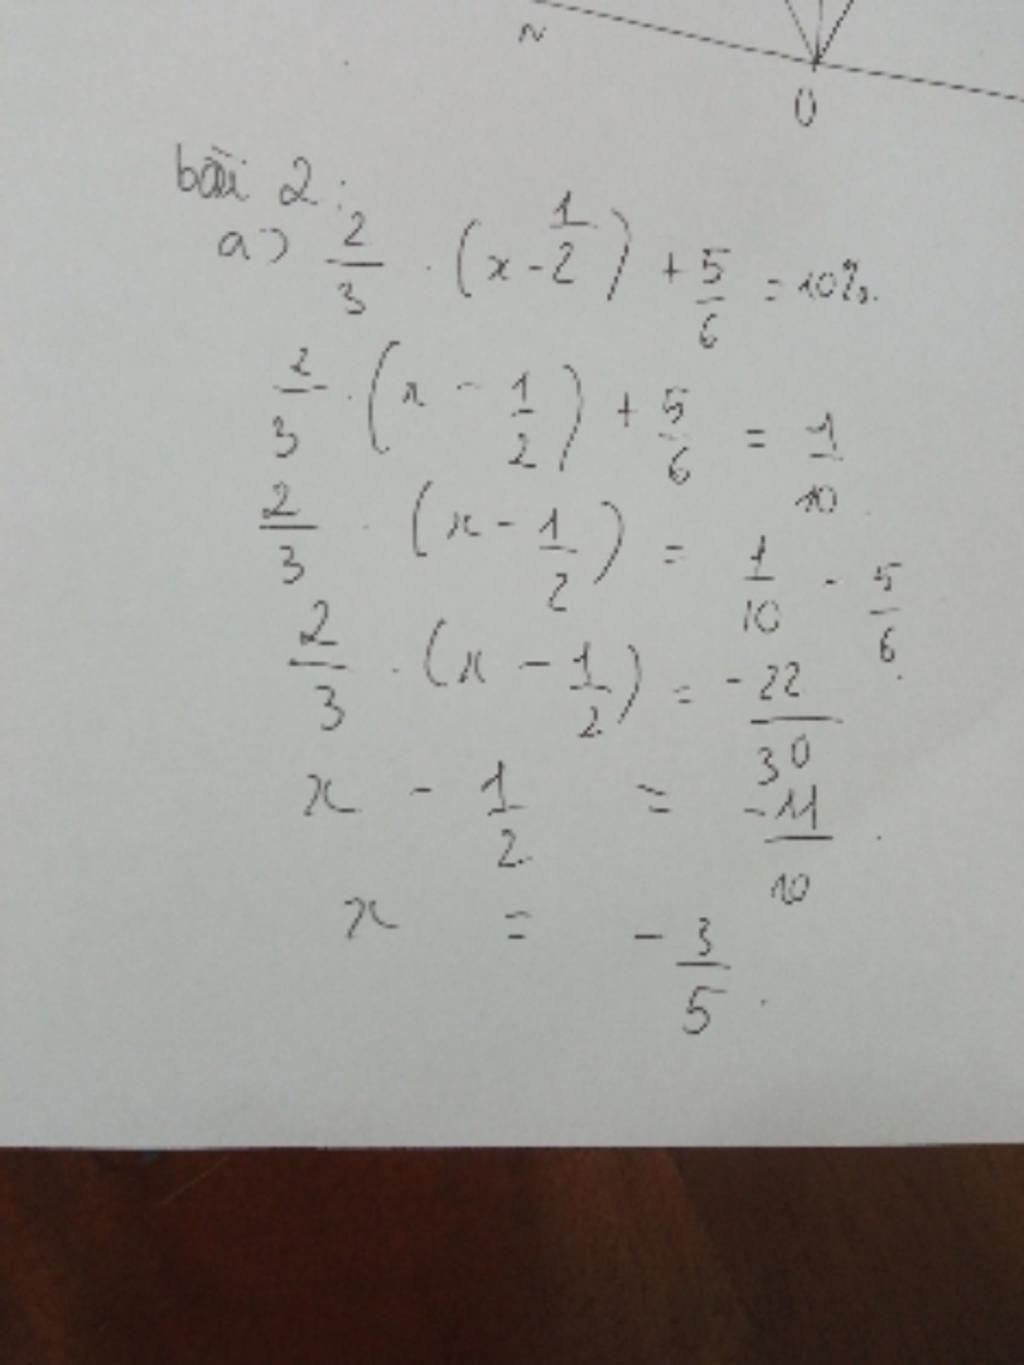 N
O
bài 2:
a) 2/3 . (x - 1/2) + 5/6 = 10%.
2/3 . (x - 1/2) + 5/6 = 1/10.
2/3 . (x - 1/2) = 1/10 - 5/6.
2/3 . (x - 1/2) = -22/30
x - 1/2 = -11/10.
x = -3/5.